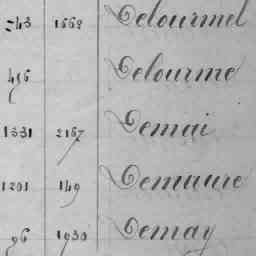 43 1662 Delourmel
496 Delourme
1331 2167 Demai
1201 149 Demaure
96 1930 Demay